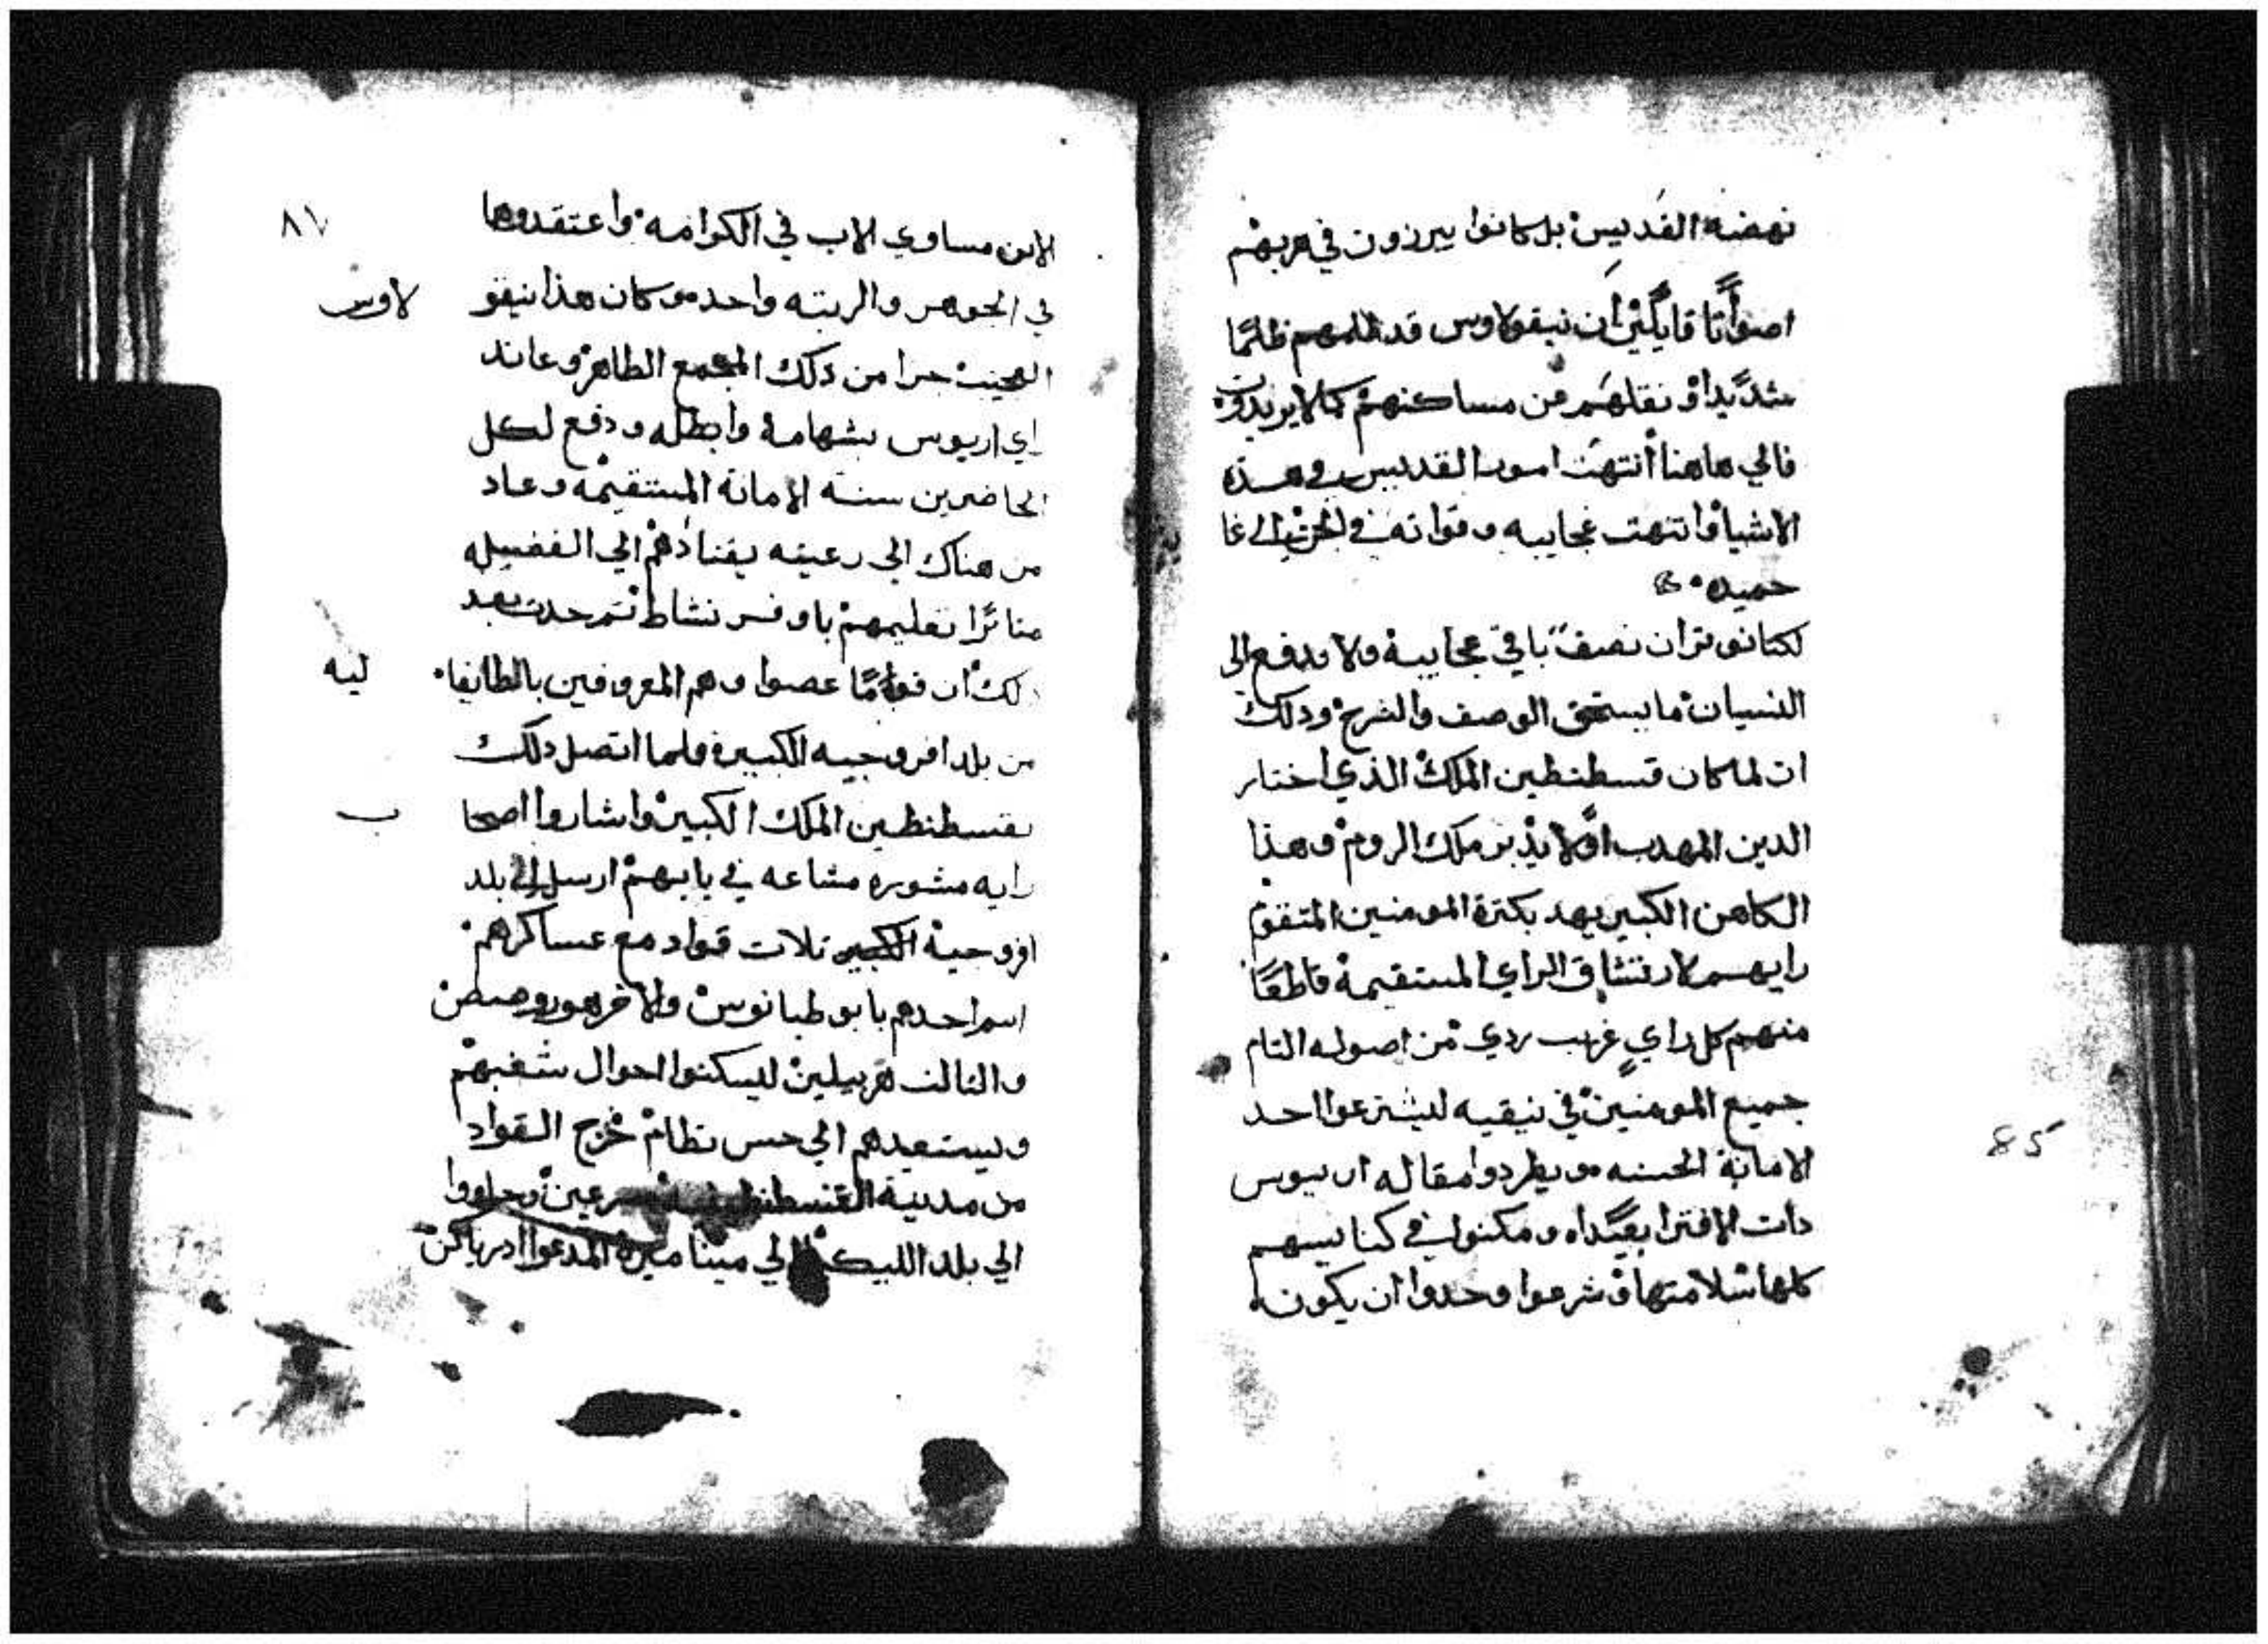 نهضة القديس بل كانوا يبرزون في هربهم
اصواتًا قايلين ان نيقولاوس قد ظلمهم ظلمًا
شديدا ونقلهم من مساكنهم كما لا يريدون
فالي هاهنا انتهت امور القديس في هذه
الاشيا وانتهت عجايبه وقواته في
حميده
لكنا نوتر ان نصف باقي عجايبه ولا ندفع الى
النسيان ما يستحق الوصف والشرح ودلك
ان لما كان قسطنطين الملك الذي اختار
الدين المهدب اولا يدبر ملك الروم وهذا
الكاهن الكبير يهد بكترة المومنين المتفقة
رايهم لارتشاق الراي المستقيمة قاطعًا
منهم كل راي غريب ردي من اصوله التام
جميع المومنين في نيقيه ليشترعوا احد
الامانة الحسنه ويطردوا مقالة اريوس
دات الافترا بعيداه ومكنوا في كنايسهم
كلها سلامتها وشرعوا وحدوا ان يكون
٨٦
الابن مساوي الاب في الكرامه واعتقدوها
في الجوهر والرتبه واحده وكان هذا نيقو
لاوس
العجيب حرا من دلك المجمع الطاهر وعاند
اي اريوس بشهامة وابطله ودفع لكل
الحاضرين سنة الامانة المستقيمه وعاد
من هناك الي رعيته يقتادهم الي الفضيله
مناترًا تعليمهم باوفر نشاط تم حدت بعد
دلك ان قوامًا عصوا وهم المعروفين بالطايفا
ليه
من بلد افروجيه الكبيرة فلما اتصل دلك
بقسطنطين الملك الكبير واشاروا اصحا
ب
رايه مشوره مشاعه في بابهم ارسل الى بلد
افروجية الكبيره تلات قواد مع عساكرهم
اسم احدهم بابوطيانوس والاخر هو
والتالت هربيلين ليسكنوا احوال شغبهم
ويستعيدهم الي حسن نظام خرج القواد
من مدينة القسطنطينية مسرعين وجاووا
الي بلد الليكية الي مينا ميرة المدعوا ادرياكن
85